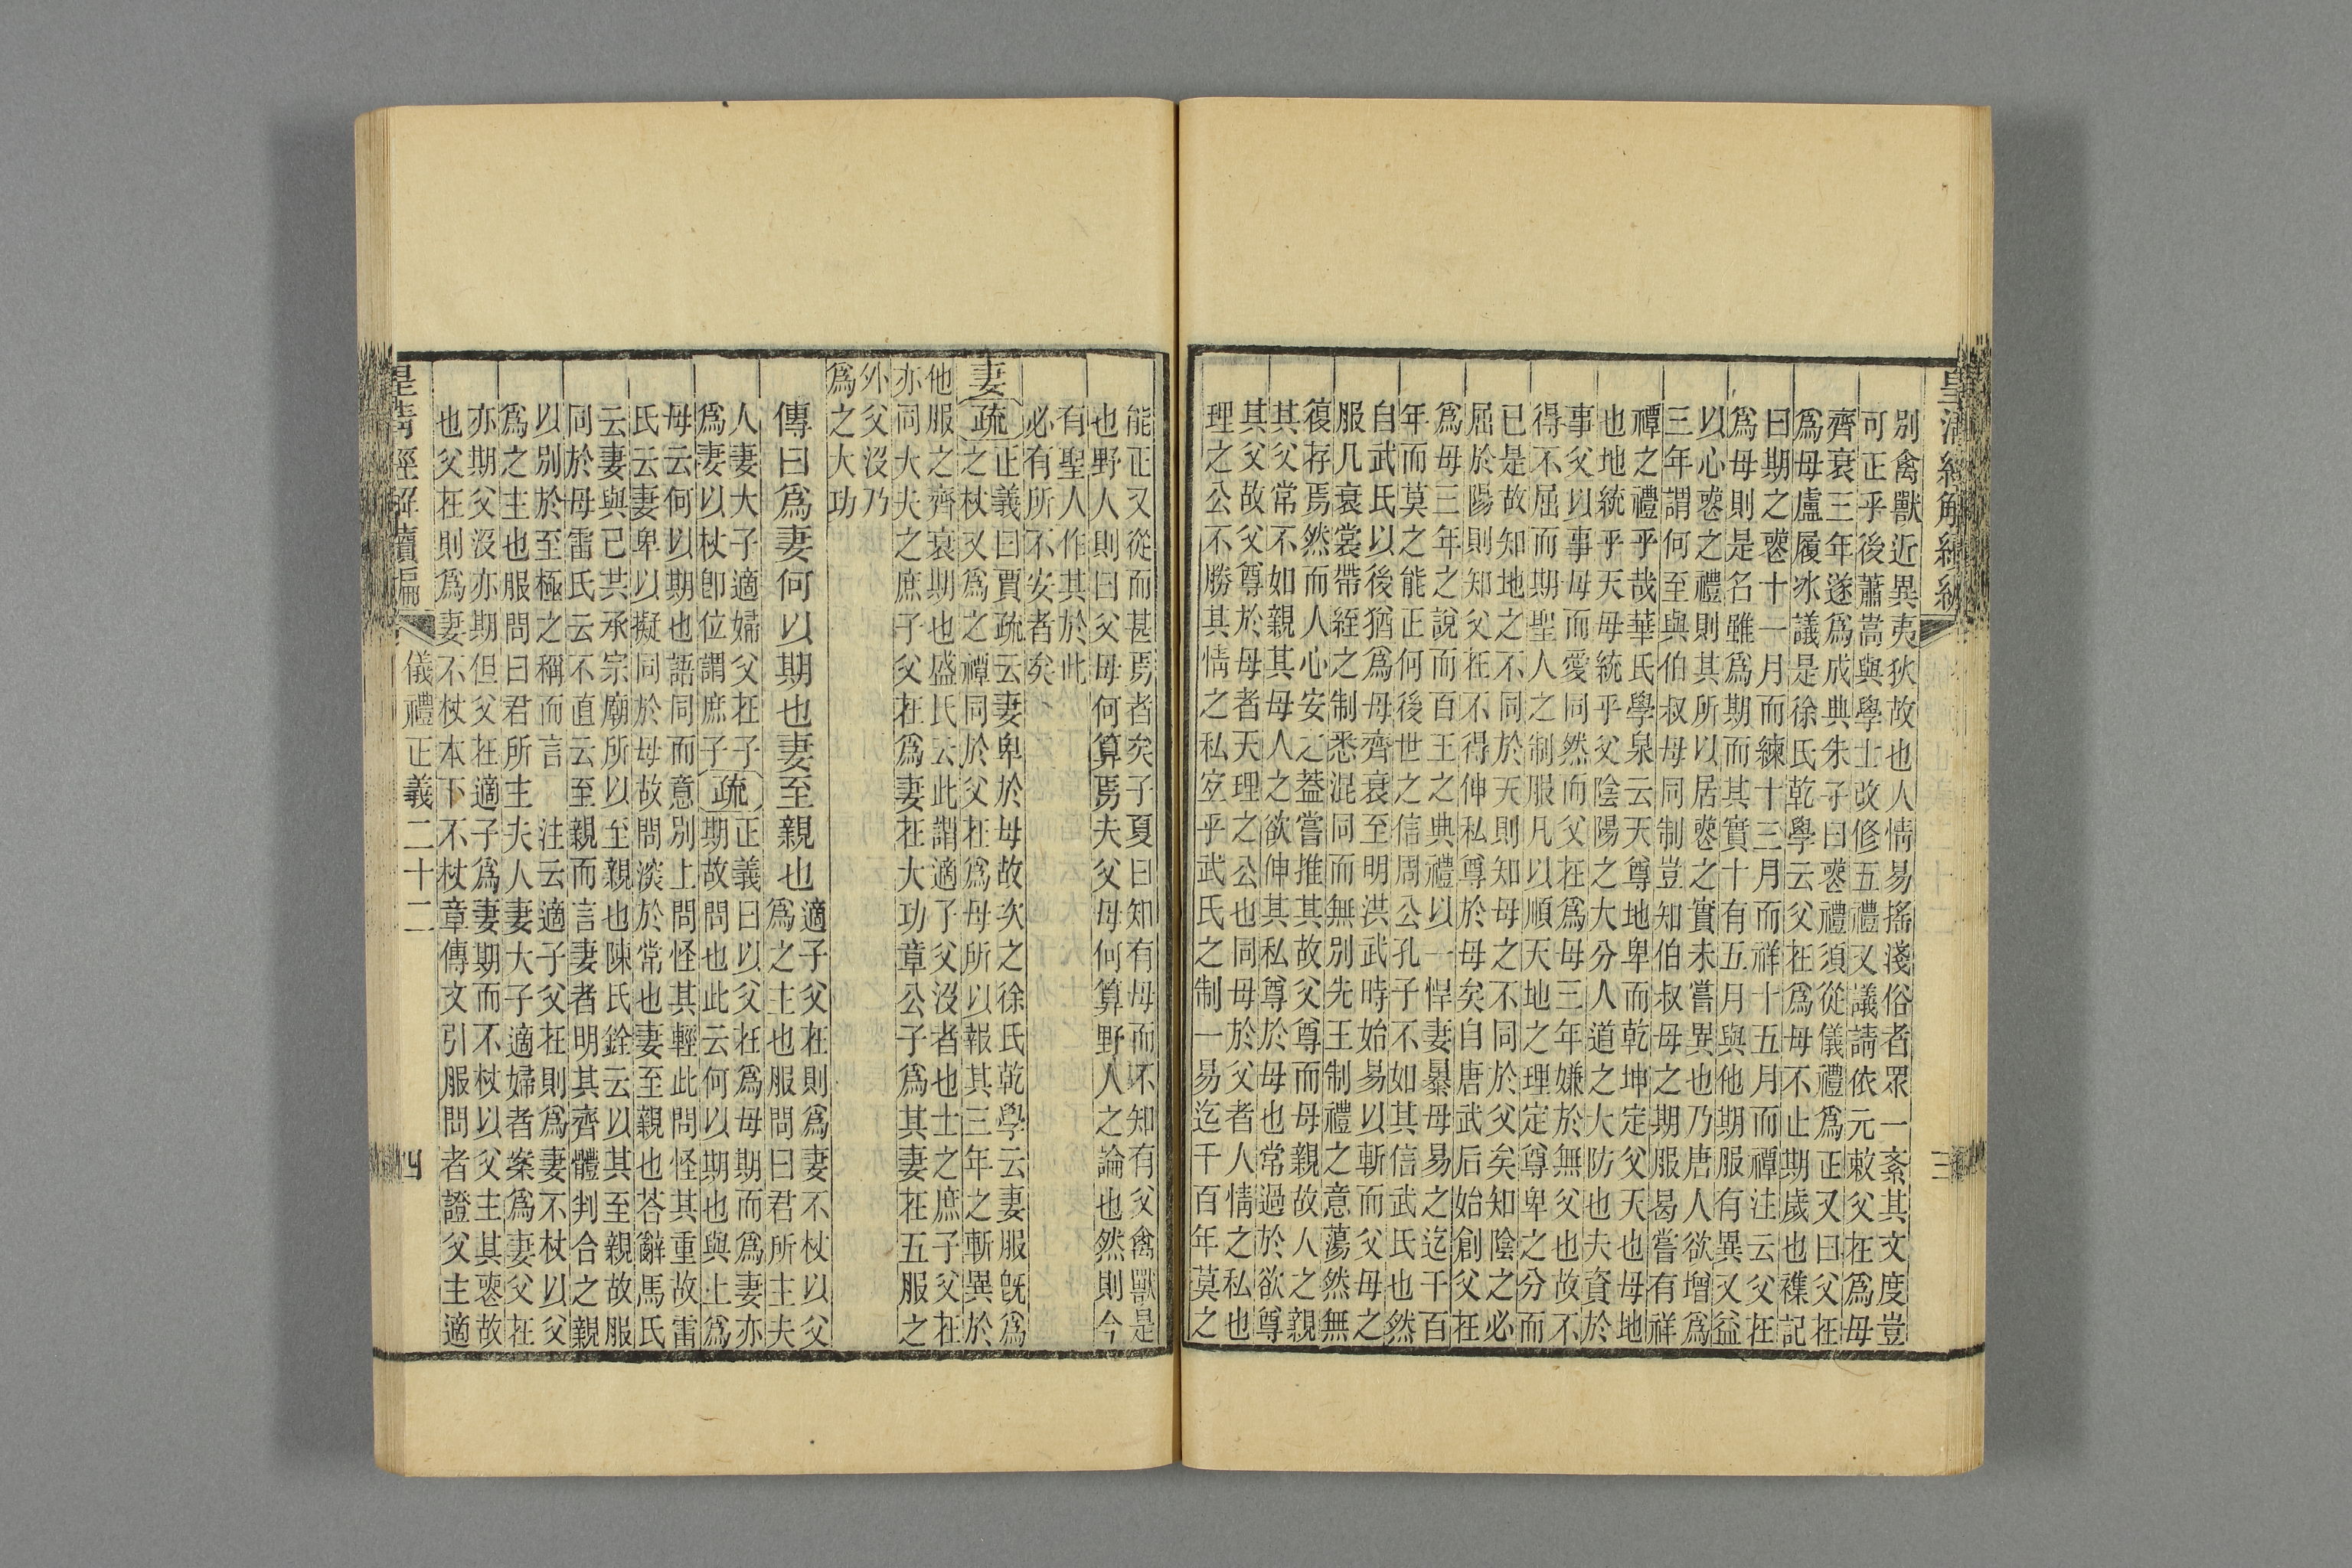 皇清經解續編
三
別禽獸近異夷狄故也人情易搖淺俗者眾一紊其文度豈
可正乎後蕭嵩與學士改修五禮又議請依元敕父在爲母
齊衰三年遂爲成典朱子曰喪禮須從儀禮爲正又曰父在
爲母盧履冰議是徐氏乾學云父在爲母不止期歲也襍記
曰期之喪十一月而練十三月而祥十五月而禫注云父在
爲母則是名雖爲期而其實十有五月與他期服有異又益
以心喪之禮則其所以居喪之實未嘗異也乃唐人欲增爲
三年謂何至與伯叔母同制豈知伯叔母之期服曷嘗有祥
禫之禮乎哉華氏學泉云天尊地卑而乾坤定父天也母地
也地統乎天母統乎父陰陽之大分人道之大防也夫資於
事父以事母而愛同然而父在爲母三年嫌於無父也故不
得不屈而期聖人之制服凡以順天地之理定尊卑之分而
已是故知地之不同於天則知母之不同於父矣知陰之必
屈於陽則知父在不得伸私尊於母矣自唐武后始創父在
爲母三年之說而百王之典禮以一悍妻暴母易之迄千百
年而莫之能正何後世之信周公孔子不如其信武氏也然
自武氏以後猶爲母齊衰至明洪武時始易以斬而父母之
服几衰裳帶絰之制悉混同而無別先王制禮之意蕩然無
復存焉然而人心安之葢嘗推其故父尊而母親故人之親
其父常不如親其母人之欲伸其私尊於母也常過於欲尊
其父故父尊於母者天理之公也同母於父者人情之私也
理之公不勝其情之私宐乎武氏之制一易迄千百年莫之
能正又從而甚焉者矣子夏曰知有母而不知有父禽獸是
也野人則曰父母何算焉夫父母何算野人之論也然則今
有聖人作其於此
必有所不安者矣
妻疏正義曰賈疏云妻卑於母故次之徐氏乾學云妻服旣爲
之杖又爲之禫同於父在爲母所以報其三年之斬異於
他服之齊衰期也盛氏云此謂適子父沒者也士之庶子父在
亦同大夫之庶子父在爲妻在大功章公子爲其妻在五服之
外父沒乃
爲之大功
傳曰爲妻何以期也妻至親也適子父在則爲妻不杖以父
爲之主也服問曰君所主夫
人妻大子適婦父在子
爲妻以杖卽位謂庶子疏正義曰以父在爲母期而爲妻亦
期故問也此云何以期也與上爲
母云何以期也語同而意別上問怪其輕此問怪其重故雷
氏云妻卑以擬同於母故問深於常也妻至親也荅辭馬氏
云妻與己共承宗廟所以至親也陳氏銓云以其至親故服
同於母雷氏云不直云至親而言妻者明其齊體判合之親
以別於至極之稱而言　注云適子父在則爲妻不杖以父
爲之主也服問曰君所主夫人妻大子適婦者案爲妻父在
亦期父沒亦期但父在適子爲妻期而不杖以父主其喪故
也父在則爲妻不杖本下不杖章傳文引服問者證父主適
皇清經解續編
儀禮正義二十二
四